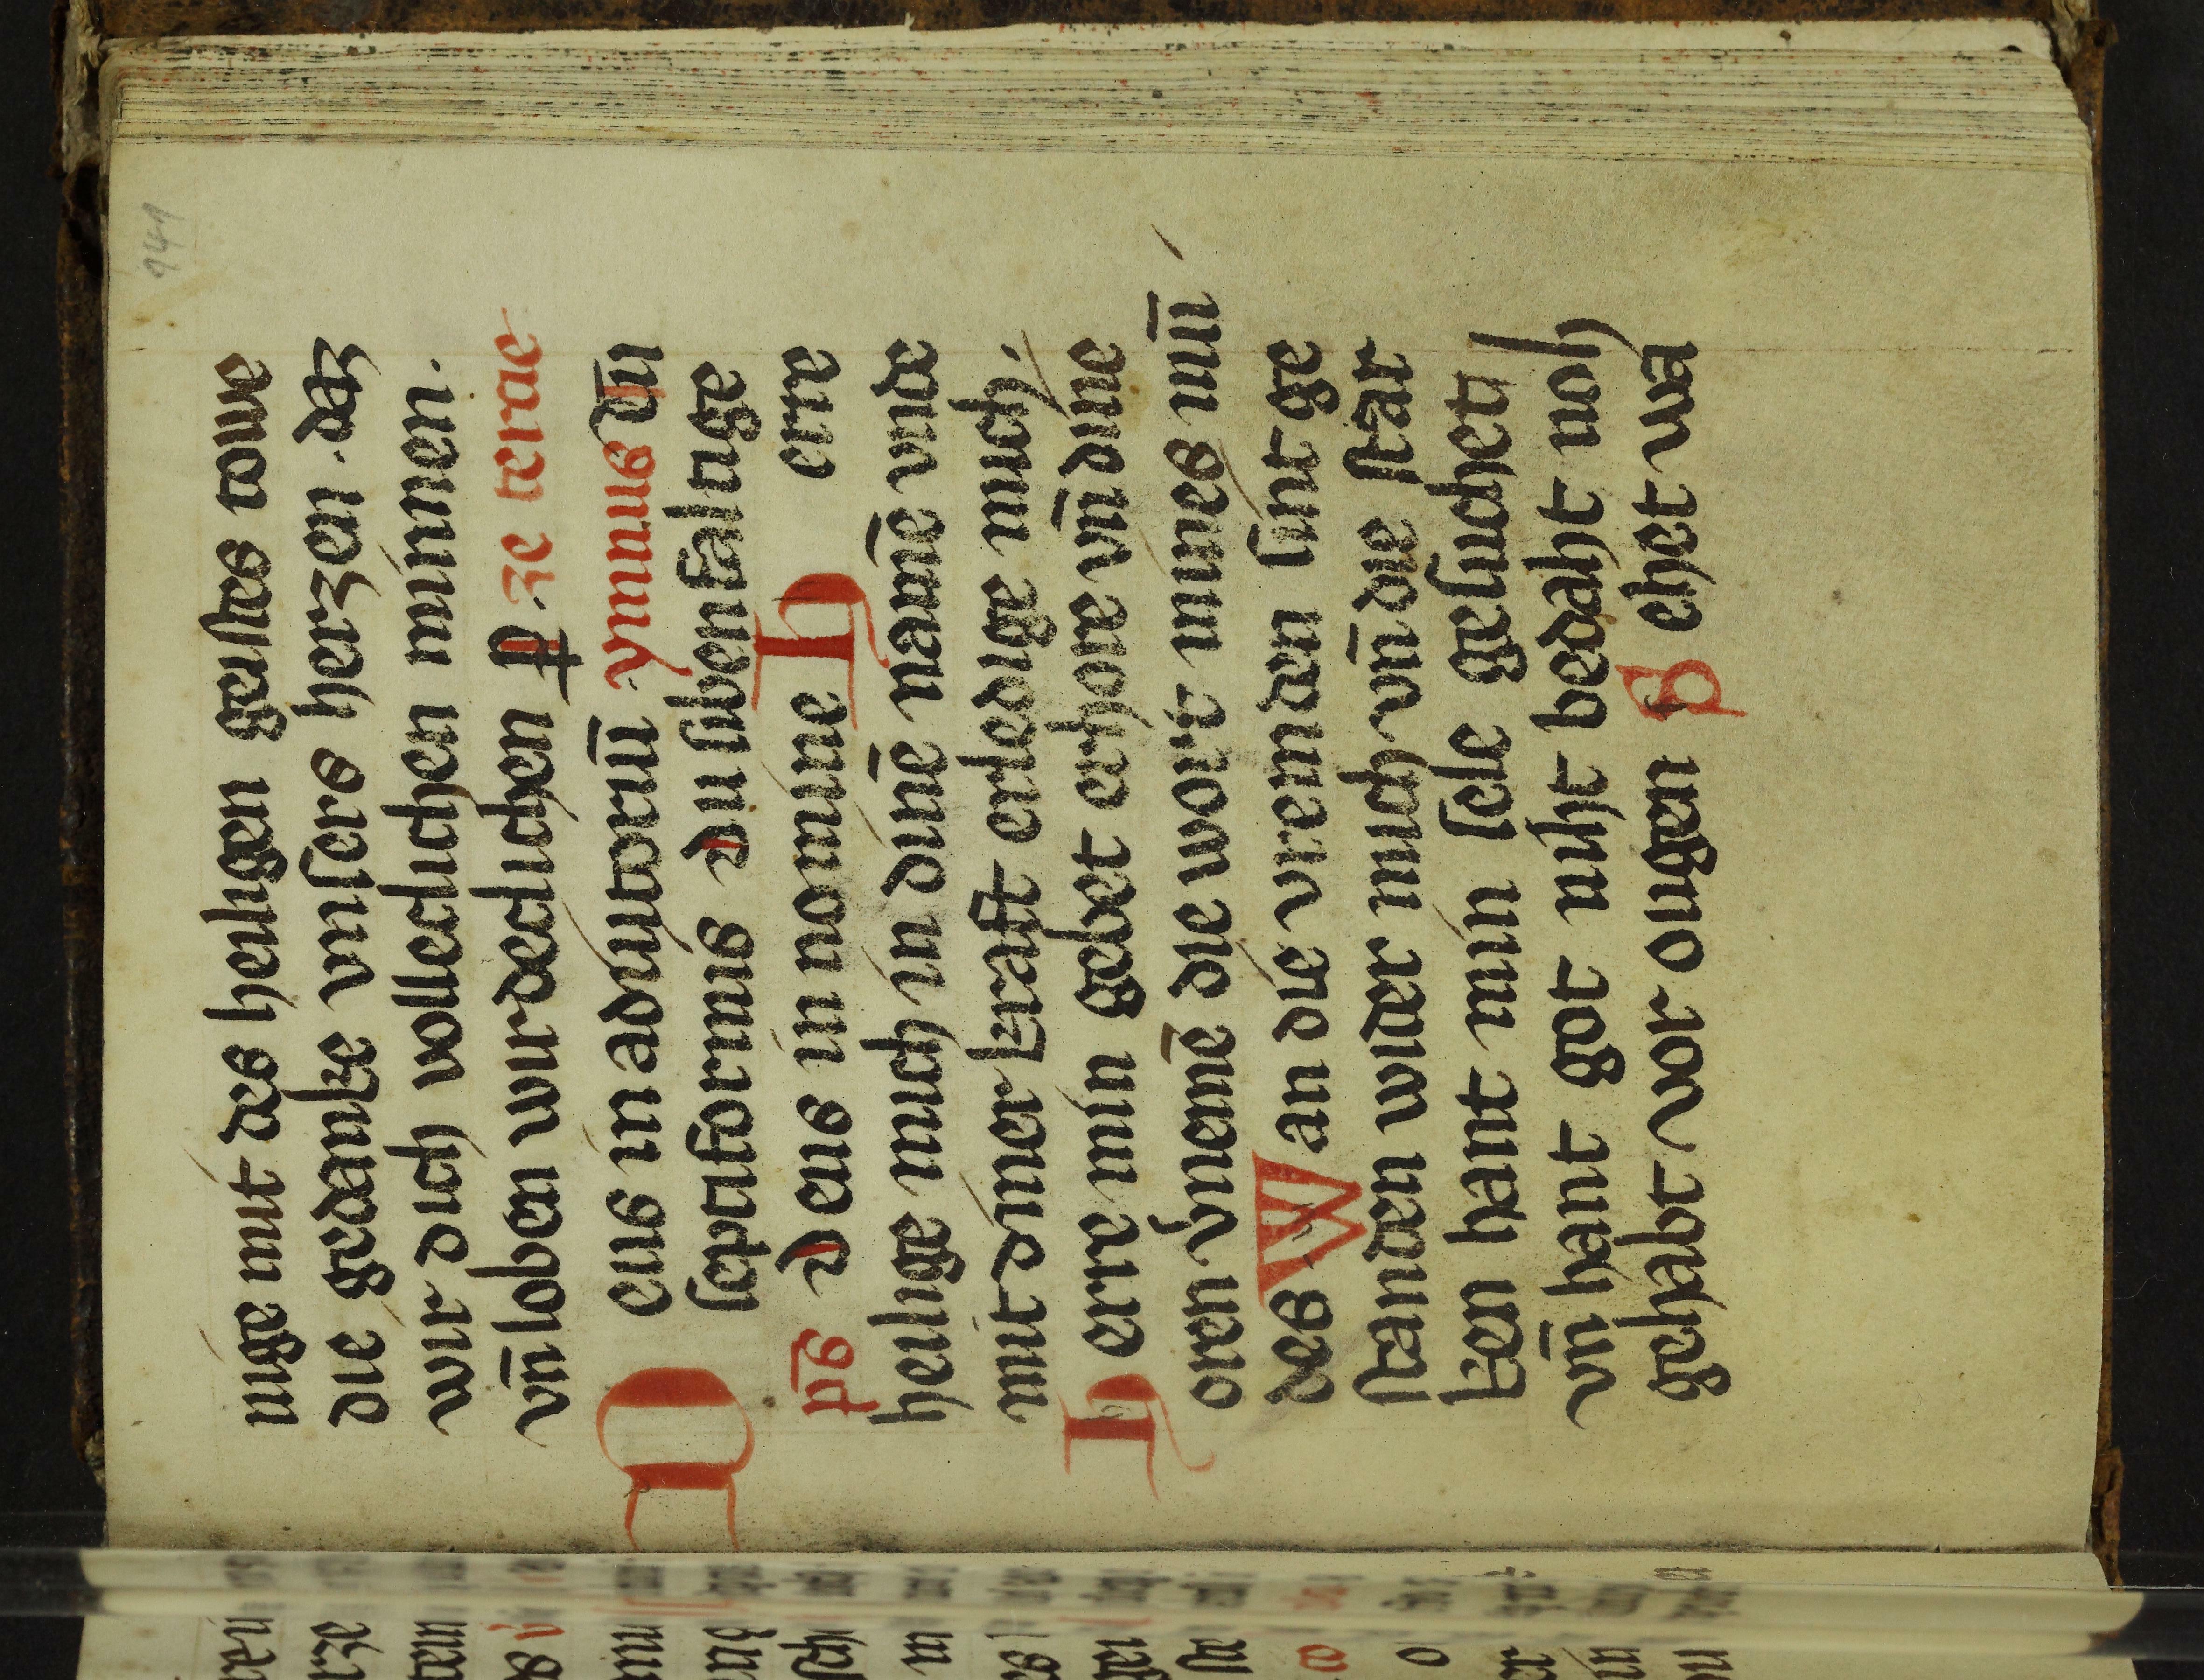 nige mit des heiligen geistes towe
die gedanke vnsers herzen . daz
wir dich volleclichen minnen .
vn̄ loben wirdeclichen P . ze terae
Deus in adiutoriū . ymnus Dū
septiformis Du sibenfaltige
ps̄ Deus in nomine Herre
heilige mich in dinē namē vnde
mit diner kraft erledige mich .
Herre min gebet erhore vn̄ dine
oren v̓nemē die wort mines mū
des Wan die vremden sint ge
standen wider mich vn̄ die star
ken hant min sele gesuchet
vn̄ hant got niht bedaht noh
gehabt vor ougen Sehet wa